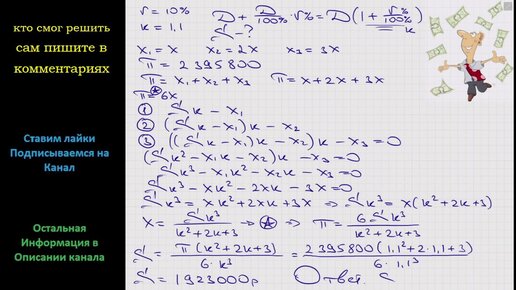 кто смог решить
сам пишите в
комментариях
Ставим лайки
Подписываемся на
Канал
Остальная
Информация в
Описании канала
r = 10%
k = 1,1
D + D/100% · r% = D(1 + r%/100%)
k
S - ?
x₁ = x x₂ = 2x x₃ = 3x
П = 2 395 800
П = x₁ + x₂ + x₃ П = x + 2x + 3x
П = 6x
① Sk - x₁
② (Sk - x₁)k - x₂
③ ((Sk - x₁)k - x₂)k - x₃ = 0
(Sk² - x₁k - x₂)k - x₃ = 0
Sk³ - x₁k² - x₂k - x₃ = 0
Sk³ - xk² - 2xk - 3x = 0
Sk³ = xk² + 2xk + 3x ⇒ Sk³ = x(k² + 2k + 3)
x = Sk³/(k² + 2k + 3) ⇒ Ⓐ ⇒ П = 6Sk³/(k² + 2k + 3)
S = П(k² + 2k + 3)/(6 · k³) = 2 395 800(1,1² + 2·1,1 + 3)/(6 · 1,1³)
S = 1923000р Ответ. S